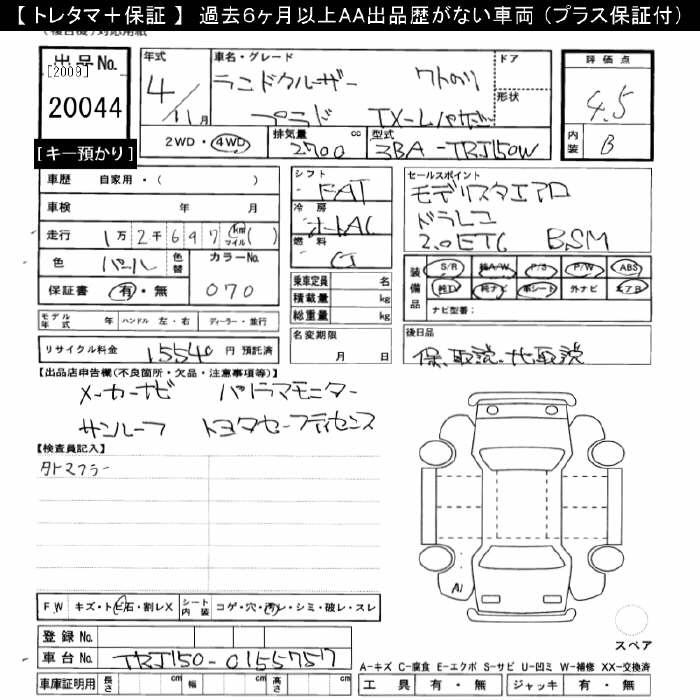 【 トレタマ＋保証 】 過去6ヶ月以上AA出品歴がない車両（プラス保証付）
出品No.
[2009]
20044
[キー預かり]
年式
4/11月
車名・グレード
ランドクルーザー ワゴン
プラド TX-L パッケージ
ドア
形状
評価点
4.5
内装 B
2WD・4WD
排気量 2700 cc
型式 3BA-TRJ150W
車歴 自家用・( )
車検 年 月
走行 1万2千697 km マイル ( )
色 パール 色替 カラーNo.
保証書 有・無 070
モデル年式 年 ハンドル 左・右 ディーラー・並行
リサイクル料金 15540 円 預託済
シフト FAT
冷房 オートAC
燃料 G
乗車定員 名
積載量 kg
総重量 kg
名変期限
月 日
セールスポイント
モデリスタエアロ
ドラレコ
2.0ETC BSM
装備品 S/R 純A/W P/S P/W ABS
純TV 純ナビ 革シート 外ナビ エアB
ナビ型番：
後日品
保、取説、他取説
【出品店申告欄(不良箇所・欠品・注意事項等)】
メーカーナビ パノラマモニター
サンルーフ トヨタセーフティセンス
【検査員記入】
外マフラー
A1
F.W キズ・トビ石・割レX シート内装 コゲ・穴・汚レ・シミ・破レ・スレ
登録No.
車台No. TRJ150-0155757
車庫証明用 長さ cm 幅 cm 高さ cm
スペア
A-キズ C-腐食 E-エクボ S-サビ U-凹ミ W-補修 XX-交換済
工具 有・無 ジャッキ 有・無